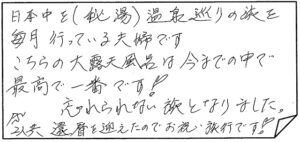 日本中を(秘湯)温泉巡りの旅を
毎月行っている夫婦です
こちらの大露天風呂は今までの中で
最高で一番です!!
忘れられない旅となりました。
が 2人共 還暦を迎えたのでお祝い旅行です!!